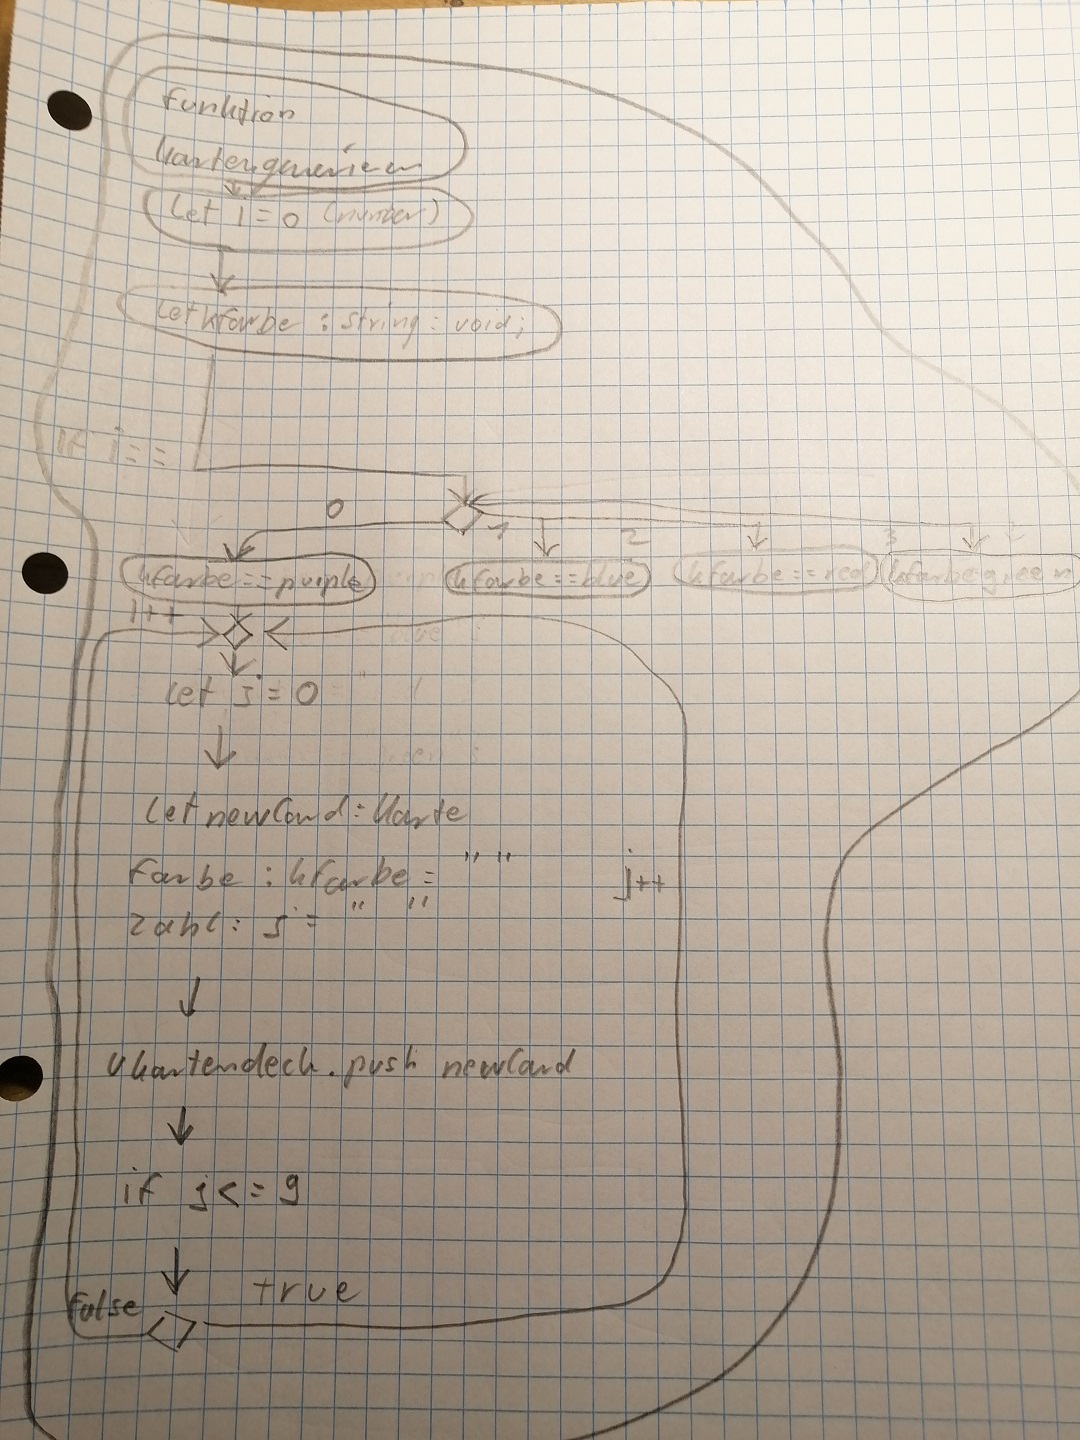 Funktion
kartengenerieren
Let i = 0 (number)
Let kfarbe : string = void;
if i ==
0
1
2
3
kfarbe == purple
kfarbe == blue
kfarbe == red
kfarbe green
i++
Let j = 0
Let newCard : Karte
Farbe : kfarbe = " "
Zahl : j = " "
j++
Ukartendeck . push newCard
if j <= 9
true
false